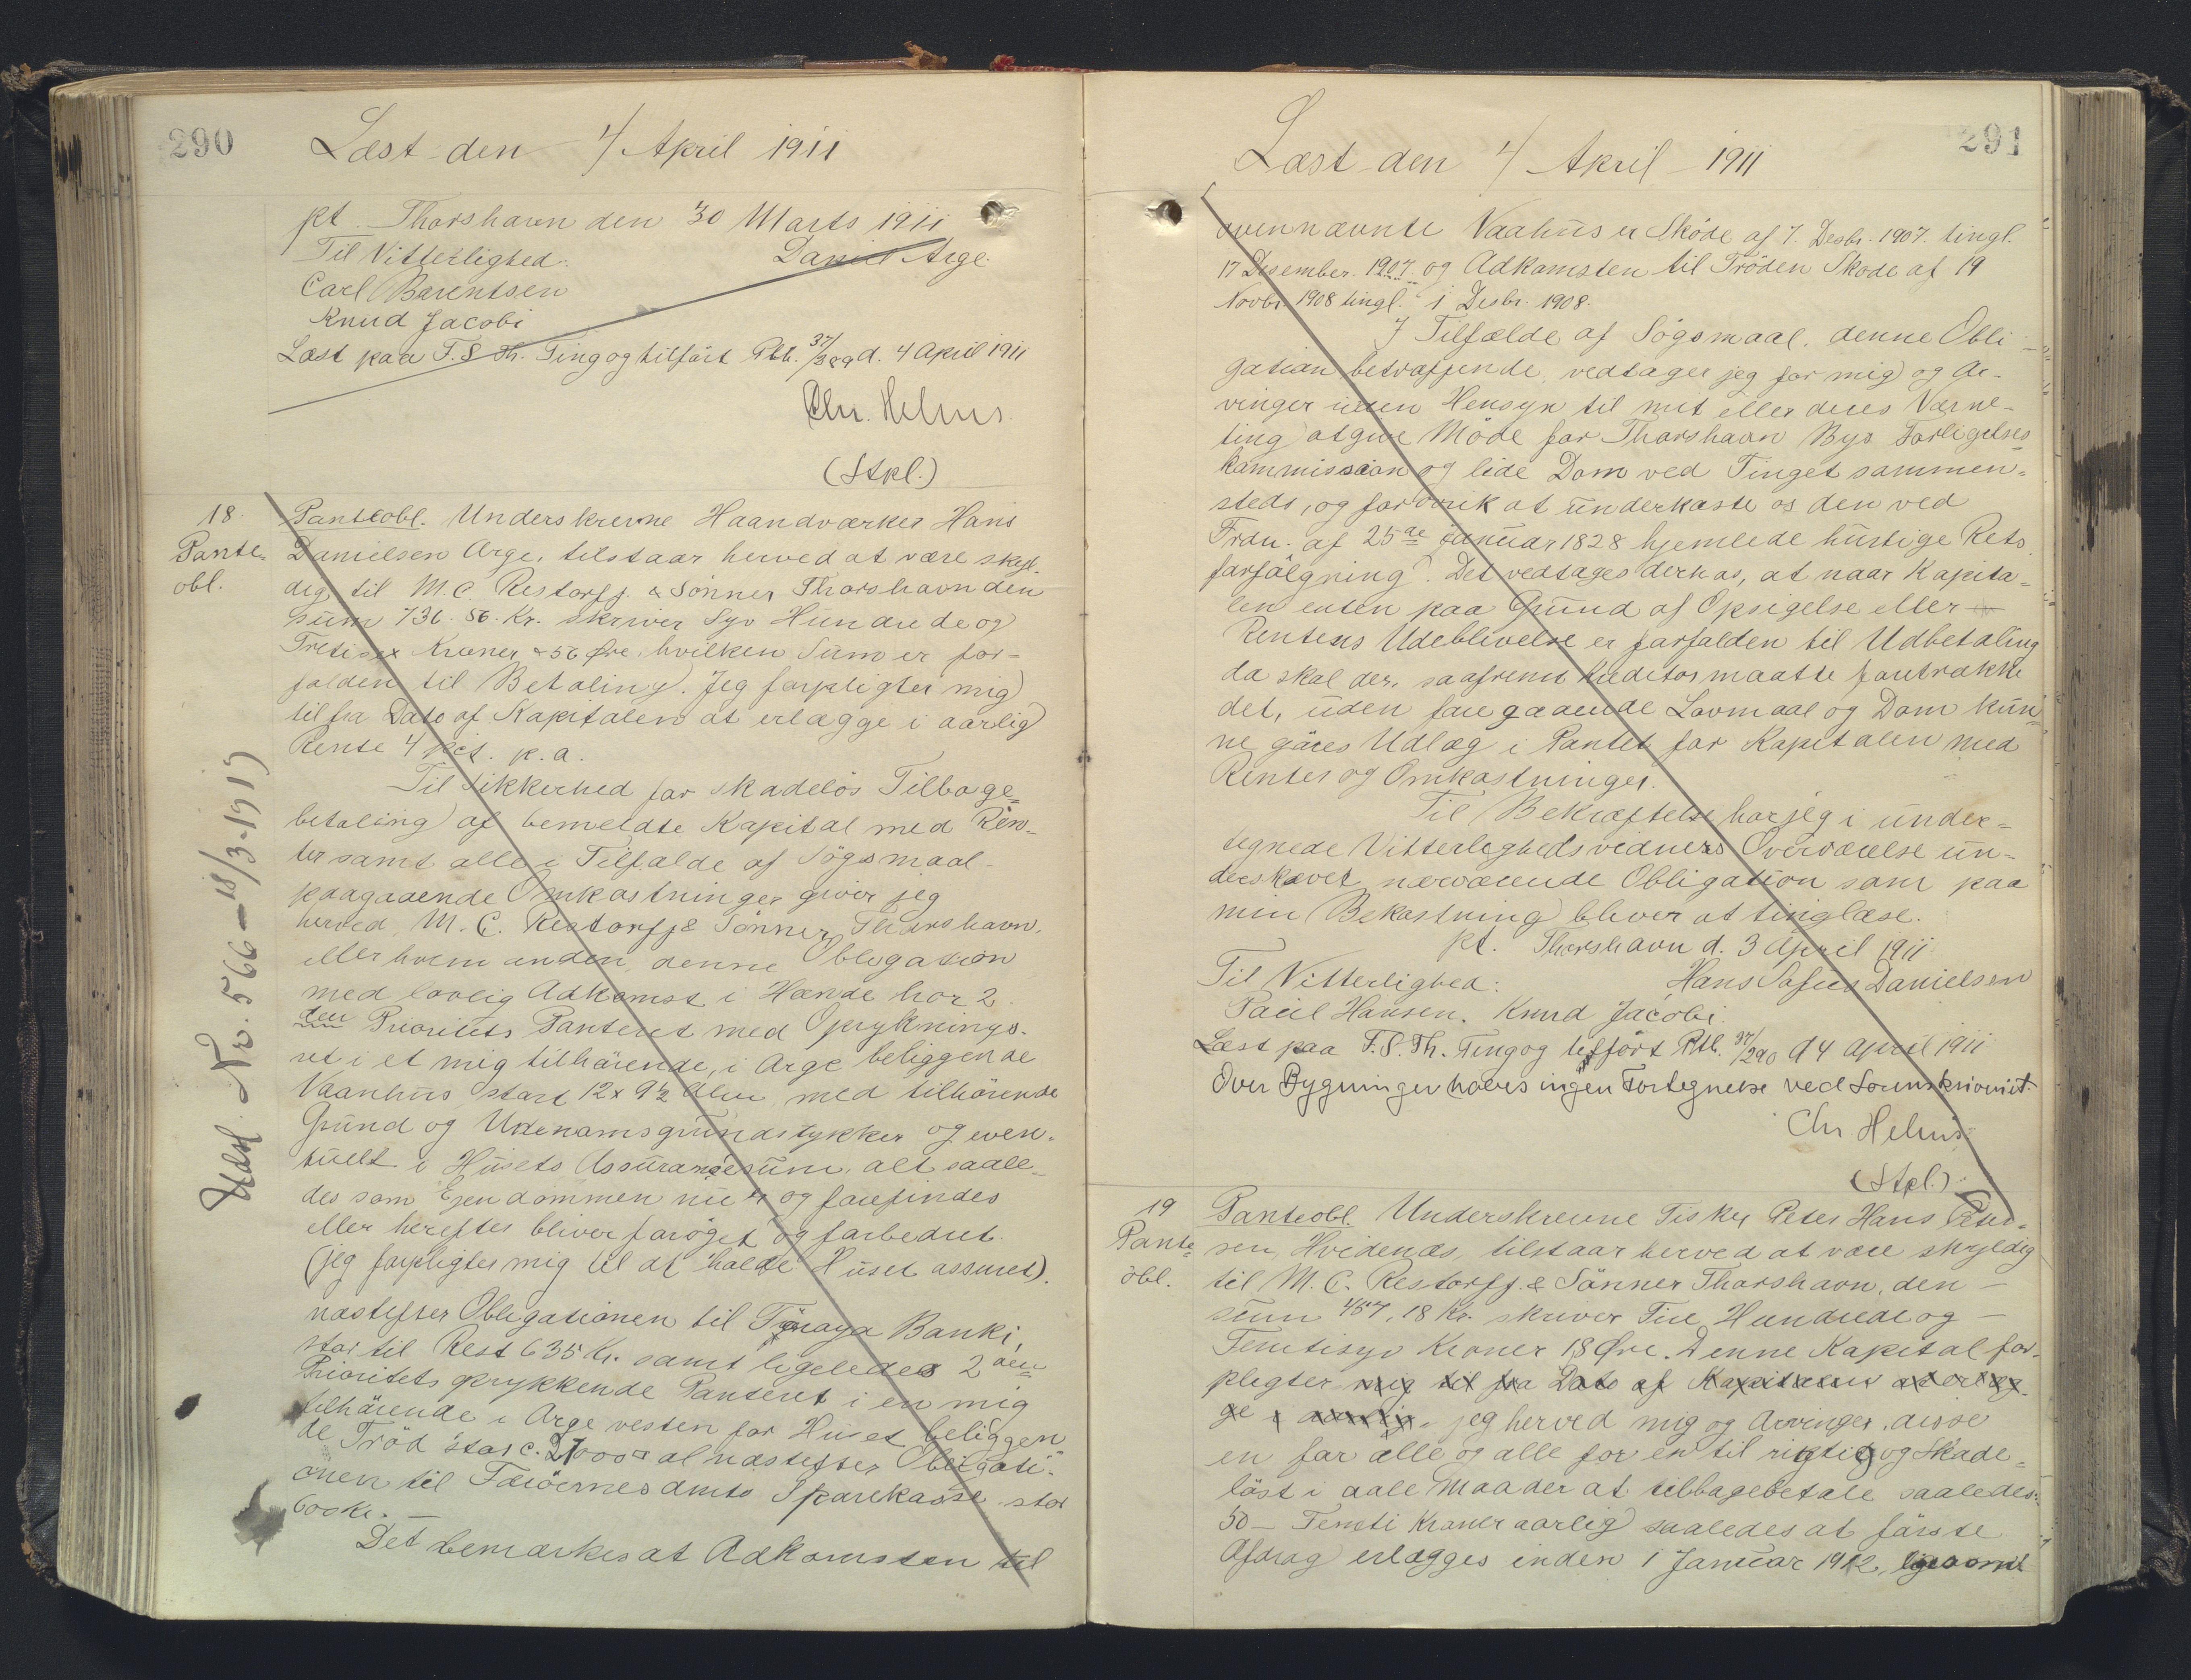 290
Læst den 4/ April 1911
pt. Thorshavn den 30 Marts 1911
Til Vitterlighed: Daniel Arge.
Carl Barentsen
Knud Jacobi
Læst paa F. S. Th. Ting og tilført Ptb. 37/289 d. 4 April 1911
Chr. Helms.
(Stpl.)
18.
Pante-
obl.
Udsl. Nr. 566 — 18/3-1913
Panteobl. Underskrevne Haandværker Hans
Danielsen Arge, tilstaar herved at være skyl-
dig til M. C. Restorff & Sønner Thorshavn den
Sum 736.56. Kr. skriver Syv Hundrede og
Tretisex Kroner & 56 Øre, hvilken Sum er for-
falden til Betaling. Jeg forpligter mig
til fra Dato af Kapitalen at erlægge i aarlig
Rente 4 pct. p.a.
Til Sikkerhed for skadelös Tilbage-
betaling af bemeldte Kapital med Ren-
ter samt alle i Tilfælde af Sögsmaal
paagaaende Omkostninger giver jeg
herved M. C. Restorff & Sönner, Thorshavn,
eller hvem anden denne Obligation
med lovlig Adkomst i Hænde har 2
den Prioritets Panteret med Opryknings-
ret i et mig tilhörende, i Arge beliggende
Vaanhus, stort 12 x 9½ Alen med tilhörende
Grund og Udenomsgrundstykker og even-
tuelt i Husets Assurancesum, alt saale-
des som Ejendommen nu er og forefindes
eller herefter bliver foröget og forbedret.
(jeg forpligter mig til at holde Huset assuret).
næstefter Obligationen til Föroya Banki,
stor til Rest 635 Kr. samt ligeledes 2 den
Prioritets oprykkende Panteret i en mig
tilhörende i Arge vesten for Huset beliggen-
de Tröd stor c. 27000 □ al næstefter Obligati-
onen til Færöernes Amts Sparekasse stor
600 Kr. —
Det bemærkes at Adkomsten til
291
Læst den 4/ April 1911
ovennævnte Vaahus er Sköde af 7. Desbr. 1907. tingl.
17 Desember 1907 og Adkomsten til Tröden Sköde af 19
Novbr. 1908 tingl. 1 Desbr. 1908.
I Tilfælde af Sögsmaal, denne Obli-
gation betræffende, vedtager jeg for mig og Ar-
vinger uden Hensyn til mit eller deres Værne-
ting at give Möde for Thorshavn Bys Forligelses
kommission og lide Dom ved Tinget sammen-
steds, og forövrik at underkaste os den ved
Frdn. af 25de januar 1828 hjemlede hurtige Rets
forfölgning. Det vedtages derhos, at naar Kapita-
len enten paa Grund af Opsigelse eller —
Rentens Udeblivelse er forfalden til Udbetaling
da skal der, saafremt Kreditor maatte foretrække
det, uden foregaaende Lovmaal og Dom kun-
ne göres Udlæg i Pantet for Kapitalen med
Renter og Omkostninger.
Til Bekræftelse har jeg i under-
tegnede Vitterlighedsvidners Overværelse un-
derskrevet nærværende Obligation som paa
min Bekostning bliver at tinglæse.
pt. Thorshavn d. 3 April 1911
Til Vitterlighed: Hans Sofus Danielsen
Paul Hansen. Knud Jacobi.
Læst paa F. S. Th. Ting og tilført Ptb. 37/290 d 4 April 1911
Over Bygninger haves ingen Fortegnelse ved Sorenskriveriet.
Chr Helms
(Stpl.)
19
Pante-
obl.
Panteobl. Underskrevne Fisker Peter Hans Peter-
sen, Hvidenæs, tilstaar herved at være skyldig
til M. C. Restorff & Sönner Thorshavn, den —
Sum 457,18 Kr. skriver Fire Hundrede og —
Femtisyv Kroner 18 Øre. Denne Kapital for-
pligter mig til fra Dato af Kapitalen at erlæg-
ge i aarlig jeg herved mig og Arvinger, disse
en for alle og alle for en til rigtig og Skade-
löst i aale Maader at tilbagebetale saaledes:
50 — Femti Kroner aarlig saaledes at förste
Afdrag erlægges inden 1 Januar 1912, ligesom